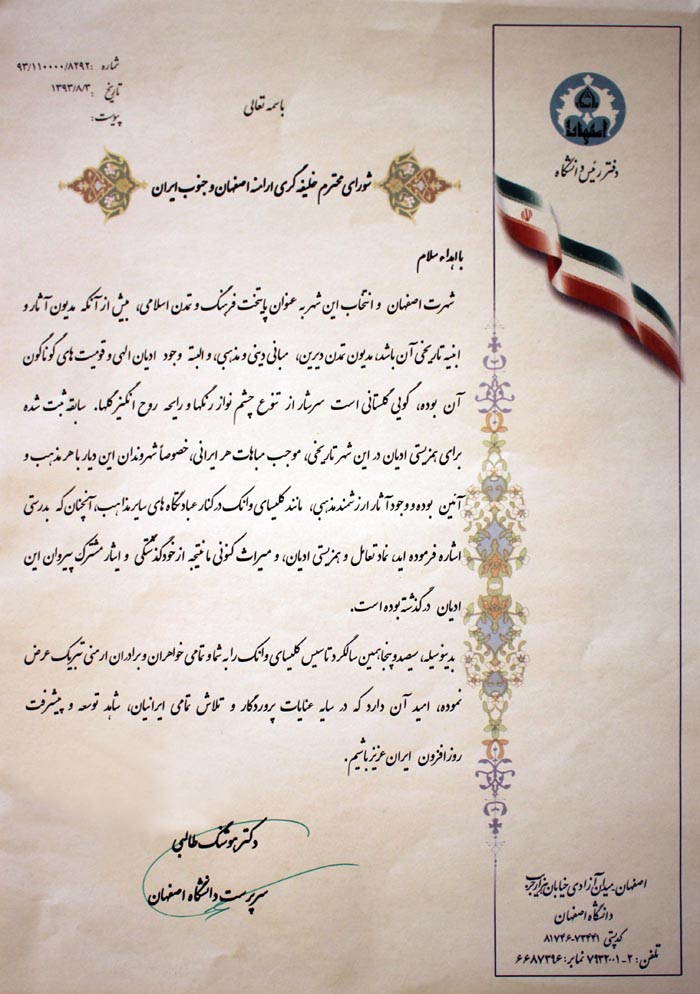 شماره: ۹۳/۱۱۰۰۰۰/۸۲۹۲
تاریخ: ۱۳۹۳/۸/۳
پیوست:
باسمه تعالی
دفتر رئیس دانشگاه
شورای محترم خلیفه گری ارامنه اصفهان و جنوب ایران
با اهداء سلام
شهرت اصفهان و انتخاب این شهر به عنوان پایتخت فرهنگ و تمدن اسلامی، بیش از آنکه مدیون آثار و
ابنیه تاریخی آن باشد، مدیون تمدن دیرین، مبانی دینی و مذهبی، و البته وجود ادیان الهی و قومیت های گوناگون
آن بوده، گویی گلستانی است سرشار از تنوع چشم نواز رنگها و رایحه روح انگیز گلها. سابقه ثبت شده
برای همزیستی ادیان در این شهر تاریخی، موجب مباهات هر ایرانی، خصوصاً شهروندان این دیار با هر مذهب و
آئین بوده و وجود آثار ارزشمند مذهبی، مانند کلیسای وانک در کنار عبادتگاه های سایر مذاهب، آنچنان که بدرستی
اشاره فرموده اید، نماد تعامل و همزیستی ادیان، و میراث کنونی ما نتیجه از خودگذشتگی و ایثار مشترک پیروان این
ادیان در گذشته بوده است.
بدینوسیله، سیصد و پنجاهمین سالگرد تاسیس کلیسای وانک را به شما و تمامی خواهران و برادران ارمنی تبریک عرض
نموده، امید آن دارد که در سایه عنایات پروردگار و تلاش تمامی ایرانیان، شاهد توسعه و پیشرفت
روز افزون ایران عزیز باشیم.
دکتر هوشنگ طالبی
سرپرست دانشگاه اصفهان
اصفهان_میدان آزادی_خیابان هزارجریب
دانشگاه اصفهان
کدپستی ۸۱۷۴۶-۷۳۴۴۱
تلفن: ۲-۷۹۳۲۰۰۱ نمابر: ۶۶۸۷۳۹۶